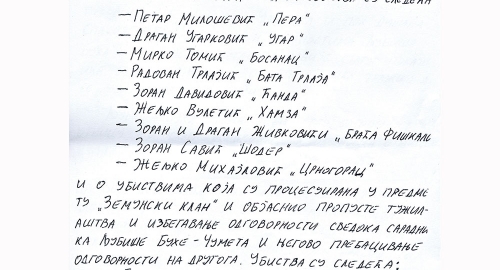 — Петар Милошевић „Пера“
— Драган Угарковић „Угар“
— Мирко Томић „Босанац“
— Радован Трлазић „Бата Трлаја“
— Зоран Давидовић „Ћанда“
— Жељко Вулетић „Хамза“
— Зоран и Драган Живковићи „Браћа Фишкали
— Зоран Савић „Шодер“
— Жељко Михајловић „Црногорац“
и о убиствима која су процесуирана у предме
ту „Земунски клан“ и објаснио пропусте тужил-
аштва и избегавање одговорности сведока сарадни
ка Љубише Бухе - Чумета и његово пребацивање
одговорности на другога. Убиства су следећа: